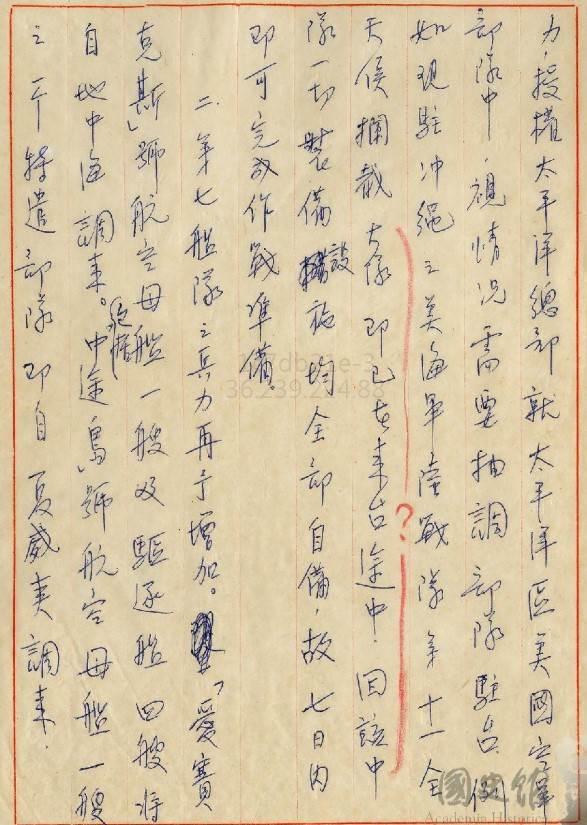 力，授權太平洋總部就太平洋區美國空軍
部隊中，視情況需要抽調部隊駐台，例
如現駐冲繩之美海軍陸戰隊第十一全
天候攔截大隊即已在來台途中，因該中
隊一切裝備設施均全部自備，故七日内
即可完成作戰準備。
二、第七艦隊之兵力再予增加。「愛賽
克斯」號航空母艦一艘及驅逐艦四艘將
自地中海調來。包括中途島號航空母艦一艘
之一干特遣部隊即自夏威夷調來，
?
36.239.224.88
國史館
Academia Historica